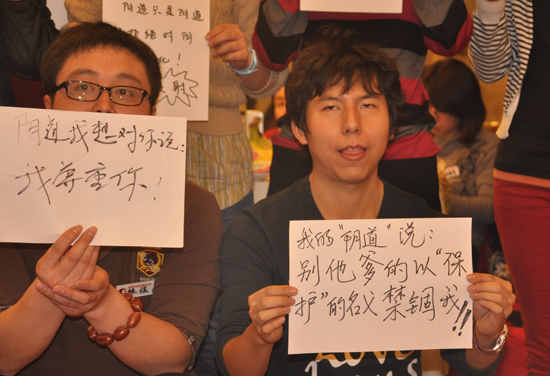 阴道只是阴道
拒绝对阴
化！
阴道我想对你说：
我尊重你！
我的“阴道”说：
别他爹的以“保
护”的名义禁锢我!!